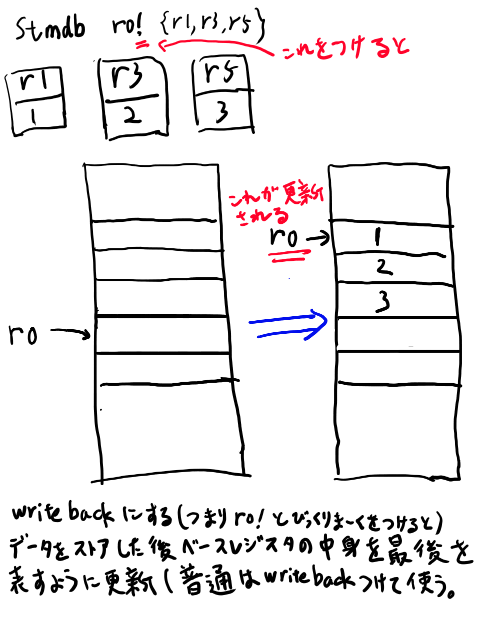 stmdb r0! {r1,r3,r5}
これをつけると
r1 r3 r5
1 2 3
これが更新
される
r0 → 1
2
3
r0 →
write backにする(つまりr0!とびっくりまーくをつけると)
データをストアした後ベースレジスタの中身を最後を
表すように更新(普通はwrite backつけて使う。